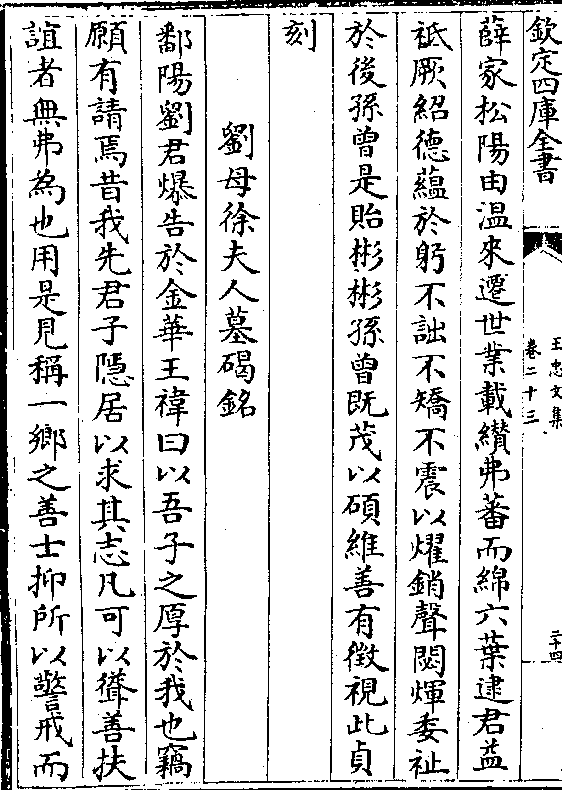 欽定四庫全書
王忠文集
卷二十三
二十四
薛家松陽由溫來遷世業載纉弗蕃而綿六葉逮君益
祗厥紹德蘊於躬不詘不矯不震以燿銷聲閟煇委祉
於後孫曾是貽彬彬孫曾既茂以碩維善有徵視此貞
刻
劉母徐夫人墓碣銘
鄱陽劉君爆告於金華王禕曰以吾子之厚於我也竊
願有請焉昔我先君子隱居以求其志凡可以聳善扶
誼者無弗為也用是見稱一鄉之善士抑所以警戒而